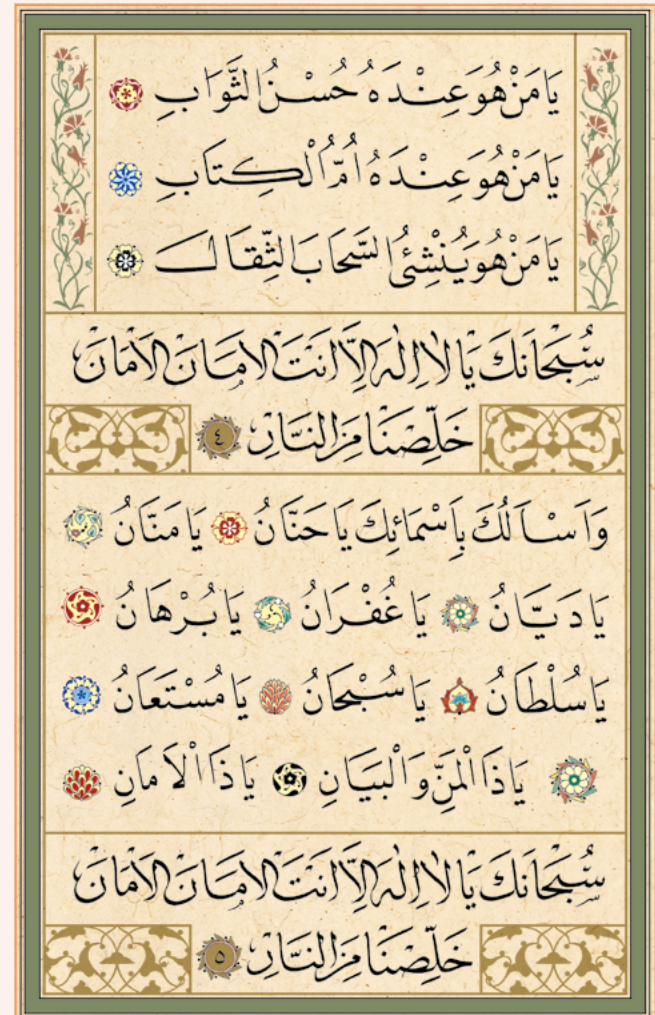 يَا مَنْ هُوَ عِنْدَهُ حُسْنُ الثَّوَابِ
يَا مَنْ هُوَ عِنْدَهُ اُمُّ الْكِتَابِ
يَا مَنْ هُوَ يُنْشِئُ السَّحَابَ الثِّقَالَ
سُبْحَانَكَ يَا لَا اِلٰهَ اِلَّا اَنْتَ الْاَمَانَ الْاَمَانَ
خَلِّصْنَا مِنَ النَّارِ ٤
وَاَسْاَلُكَ بِاَسْمَائِكَ يَا حَنَّانُ يَا مَنَّانُ
يَا دَيَّانُ يَا غُفْرَانُ يَا بُرْهَانُ
يَا سُلْطَانُ يَا سُبْحَانُ يَا مُسْتَعَانُ
يَا ذَا الْمَنِّ وَالْبَيَانِ يَا ذَا الْاَمَانِ
سُبْحَانَكَ يَا لَا اِلٰهَ اِلَّا اَنْتَ الْاَمَانَ الْاَمَانَ
خَلِّصْنَا مِنَ النَّارِ ٥